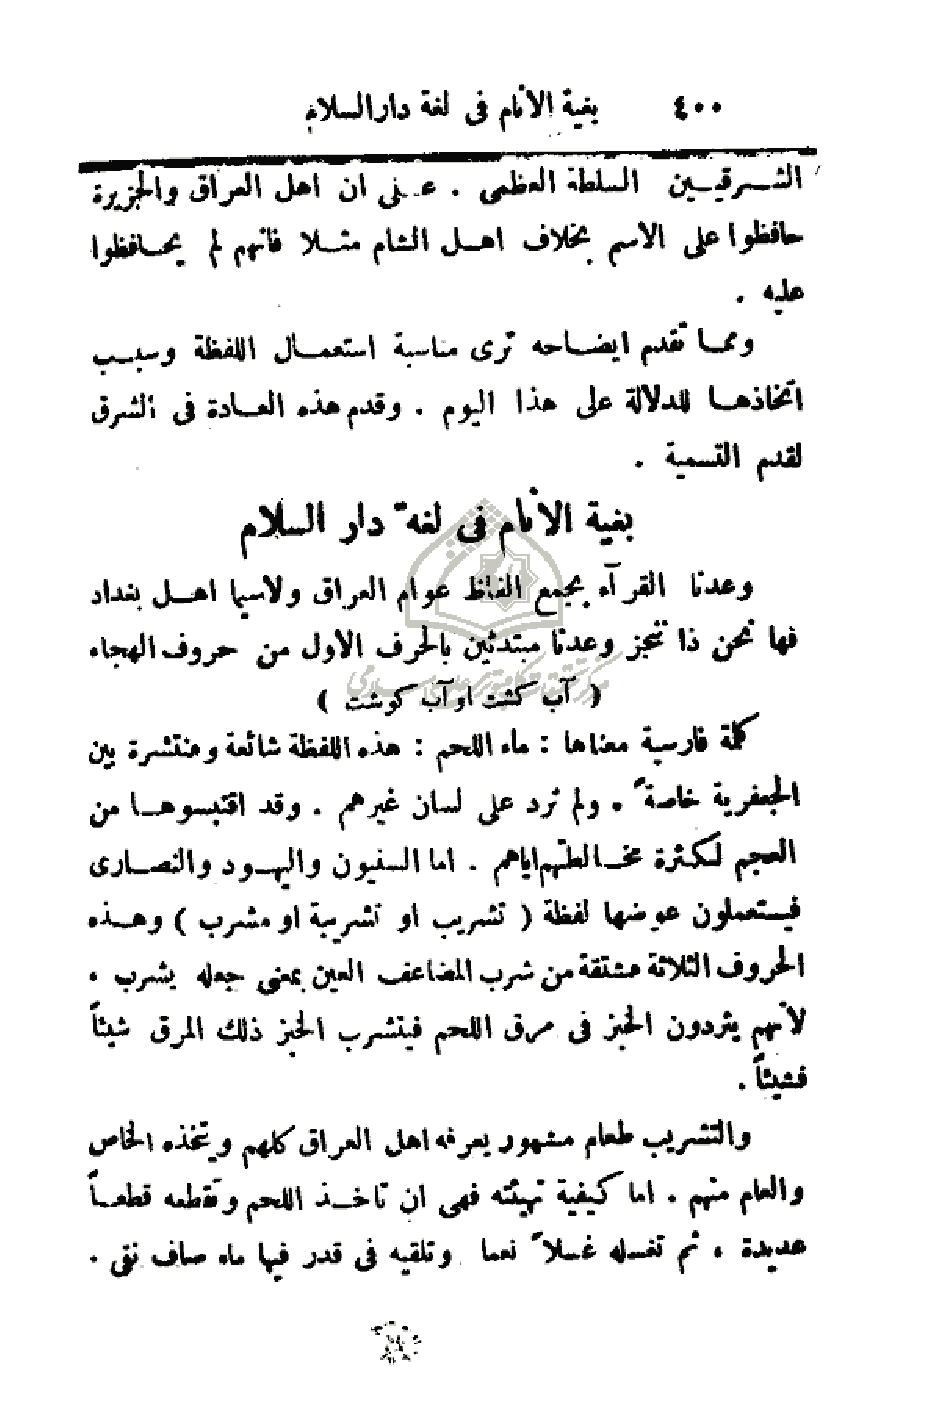 ٤٠٠ بغية الأنام فى لغة دار السلام
الشــرقيــين السلطة العظمى . عــلى ان اهل العراق والجزيرة
حافظوا على الاسم بخلاف اهــل الشام مثــلا فانهم لم يحــافظوا
عليه .
ومما تقدم ايضــاحه ترى مناسبة استعمــال اللفظة وسبــب
اتخاذهــا للدلالة على هذا اليوم . وقدم هذه العــادة فى الشرق
لقدم التسمية .
بغية الأنام فى لغة دار السلام
وعدنا القرآء بجمع الفاظ عوام العراق ولاسيما اهــل بغداد
فها نحن ذا ننجز وعدنا مبتدئين بالحرف الأول من حروف الهجاء
( آب كشت او آب كوشت )
كلمة فارسية معناها : ماء اللحم : هذه اللفظة شائعة ومنتشرة بين
الجعفرية خاصة ً . ولم ترد على لسان غيرهم . وقد اقتبسوهــا من
العجم لكثرة مخــالطتهم اياهم . اما السنيون واليهــود والنصــارى
فيستعملون عوضها لفظة ( تشريب او تشريبة او مشرب ) وهــذه
الحروف الثلاثة مشتقة من شرب المضاعف العين بمعنى جعله يشرب ،
لأنهم يثردون الخبز فى مرق اللحم فيتشرب الخبز ذلك المرق شيئاً
فشيئاً .
والتشريب طعام مشهور يعرفه اهل العراق كلهم ويتخذه الخاص
والعام منهم . اما كيفية تهيئته فهى ان تاخــذ اللحم وتقطعه قطعــاً
عديدة ، ثم تغسله غسلا ً نعما وتلقيه فى قدر فيها ماء صاف نقى .